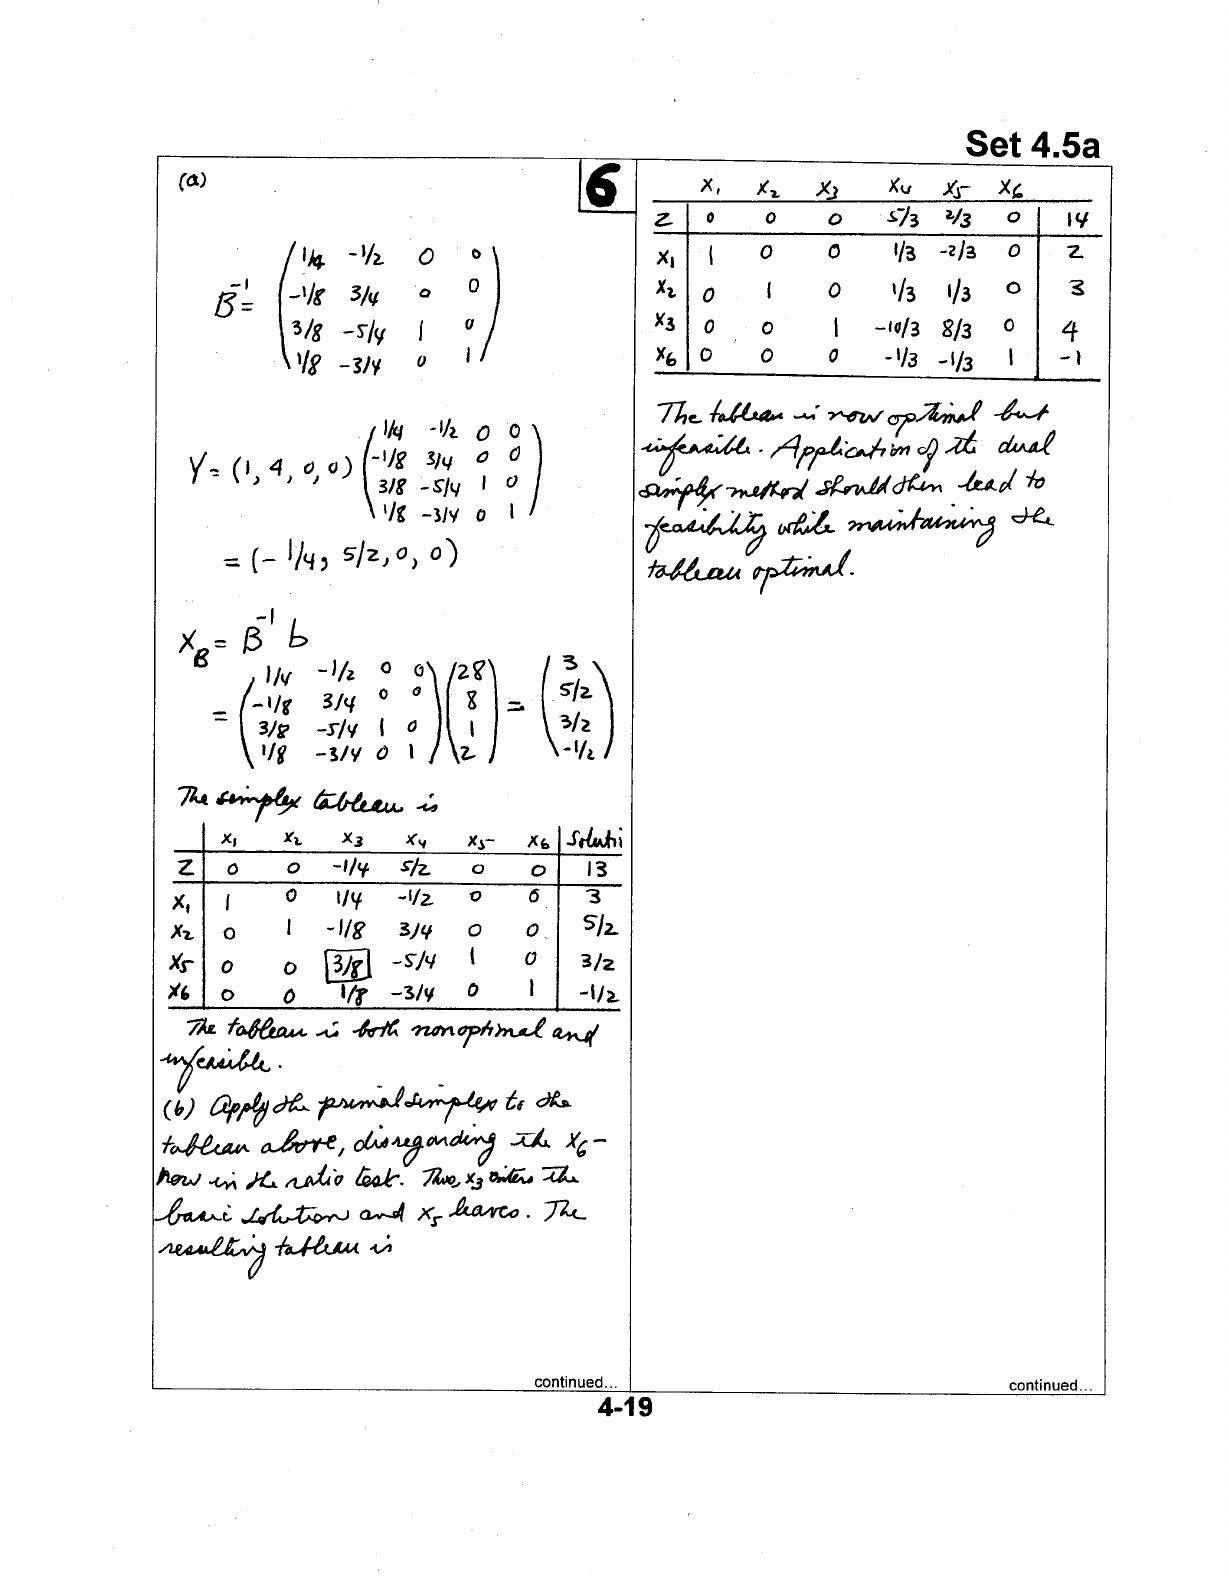 Set 4.5a
(a)
6
B⁻¹ = ( 1/4 -1/2 0 0
-1/8 3/4 0 0
3/8 -5/4 1 0
1/8 -3/4 0 1 )
Y = (1, 4, 0, 0) ( 1/4 -1/2 0 0
-1/8 3/4 0 0
3/8 -5/4 1 0
1/8 -3/4 0 1 )
= (- 1/4, 5/2, 0, 0)
X_B = B⁻¹ b
= ( 1/4 -1/2 0 0 ) ( 28 ) = ( 3 )
( -1/8 3/4 0 0 ) ( 8 ) ( 5/2 )
( 3/8 -5/4 1 0 ) ( 1 ) ( 3/2 )
( 1/8 -3/4 0 1 ) ( 2 ) ( -1/2 )
The simplex tableau is
x₁ x₂ x₃ x₄ x₅ x₆ Soluti
Z 0 0 -1/4 5/2 0 0 13
x₁ 1 0 1/4 -1/2 0 0 3
x₂ 0 1 -1/8 3/4 0 0 5/2
x₅ 0 0 3/8 -5/4 1 0 3/2
x₆ 0 0 1/8 -3/4 0 1 -1/2
The tableau is both nonoptimal and
infeasible.
(b) Apply the primal simplex to the
tableau above, disregarding the x₆-
row in the ratio test. Thus, x₃ enters the
basic solution and x₅ leaves. The
resulting tableau is
continued...
x₁ x₂ x₃ x₄ x₅ x₆
Z 0 0 0 5/3 2/3 0 14
x₁ 1 0 0 1/3 -2/3 0 2
x₂ 0 1 0 1/3 1/3 0 3
x₃ 0 0 1 -10/3 8/3 0 4
x₆ 0 0 0 -1/3 -1/3 1 -1
The tableau is now optimal but
infeasible. Application of the dual
simplex method should then lead to
feasibility while maintaining the
tableau optimal.
continued...
4-19